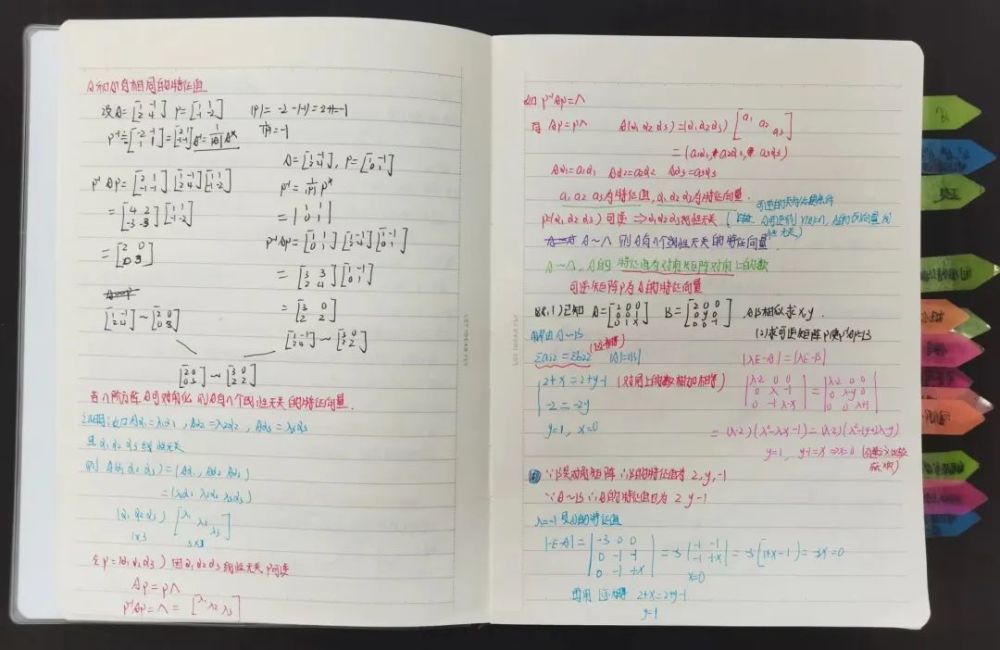 A和B有相同的特征值
设A=[1 -1; 2 4] P=[1 1; -1 -2] |P|=-2-(-1)=-2+1=-1
1/|P|=-1
A=[1 -1; 2 4], P=[1 -1; 0 1]
P⁻¹=1/|P| P*
=[1 1; 0 1]
P⁻¹AP=[2 1; -1 -1][1 -1; 2 4][1 1; -1 -2]
=[4 2; -3 -3][1 1; -1 -2]
=[2 0; 0 3]
P⁻¹AP=[1 1; 0 1][1 -1; 2 4][1 -1; 0 1]
=[3 3; 2 4][1 -1; 0 1]
=[3 0; 2 2]
[1 -1; 2 4]~[2 0; 0 3]
[1 -1; 2 4]~[3 0; 2 2]
[2 0; 0 3]~[3 0; 2 2]
若n阶方阵A可对角化 则A有n个线性无关的特征向量.
Aα₂=λ₂α₂, Aα₃=λ₃α₃
且α₁α₂α₃线性无关
则A(α₁ α₂ α₃)=(Aα₁, Aα₂ Aα₃)
=(λ₁α₁ λ₂α₂ λ₃α₃)
(α₁ α₂ α₃)[λ₁ λ₂ λ₃]
1×3 3×3
令P=(α₁ α₂ α₃) 因α₁α₂α₃线性无关 P可逆
AP=PΛ
P⁻¹AP=Λ=[λ₁ λ₂ λ₃]
如P⁻¹AP=Λ
有AP=PΛ A(α₁ α₂ α₃)=(α₁ α₂ α₃)[a₁ a₂ a₃]
=(a₁α₁, a₂α₂, a₃α₃)
Aα₁=a₁α₁ Aα₂=a₂α₂ Aα₃=a₃α₃
a₁ a₂ a₃为特征值, α₁ α₂ α₃为特征向量.
P=(α₁ α₂ α₃)可逆⇒α₁α₂α₃线性无关
A~Λ 则A有n个线性无关的特征向量
A~Λ, A的特征值为对角矩阵对角上的数
可逆矩阵P为A的特征向量
(1)已知 A=[2 0 0; 0 0 1; 0 1 x] B=[2 0 0; 0 y 0; 0 0 -1] A B相似求x, y.
(2)求可逆矩阵P使P⁻¹AP=B
A~B
Σaᵢᵢ=Σbᵢᵢ |A|=|B|
2+x=2+y-1 (对角上的数相加相等)
-2=-2y
y=1, x=0
|λE-A|=|λE-B|
|λ-2 0 0; 0 λ -1; 0 -1 λ-x|=|λ-2 0 0; 0 λ-y 0; 0 0 λ+1|
=(λ-2)(λ²-λx-1)=(λ-2)(λ²+(1-y)λ-y)
y=1, y-1=x⇒x=0
∵B是对角矩阵 ∴B的特征值为 2, y, -1
∵A~B ∴A的特征值也为 2 y -1
λ=-1是A的特征值
|-E-A|=|-3 0 0; 0 -1 -1; 0 -1 -1-x|=-3|-1 -1; -1 -1-x|=-3[1+x-1]=-3x=0
x=0
再用 2+x=2+y-1
y=1